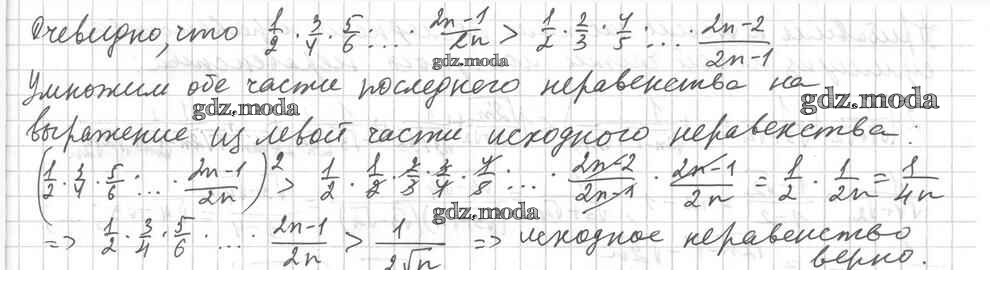 Очевидно, что 1/2 · 3/4 · 5/6 · ... · (2n-1)/2n > 1/2 · 2/3 · 4/5 · ... · (2n-2)/(2n-1)
gdz.moda
Умножим обе части последного неравенства на
gdz.moda gdz.moda
выражение из левой части исходного неравенства:
(1/2 · 3/4 · 5/6 · ... · (2n-1)/2n)² > 1/2 · 1/2 · 2/3 · 3/4 · 4/5 · ... · (2n-2)/(2n-1) · (2n-1)/2n = 1/2 · 1/2n = 1/4n
gdz.moda
=> 1/2 · 3/4 · 5/6 · ... · (2n-1)/2n > 1/(2√n) => исходное неравенство
верно.